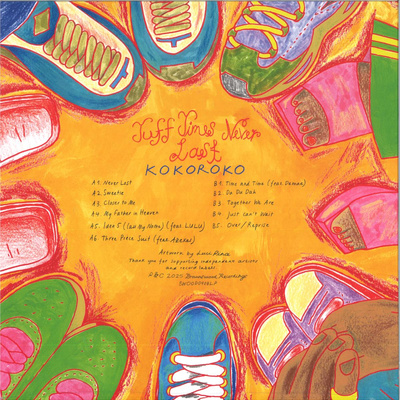 Tuff Times Never
Last
KOKOROKO
A1. Never Lost
A2. Sweetie
A3. Closer to Me
A4. My Father in Heaven
A5. Idea 5 (Call My Name) (feat. LULU)
A6. Three Piece Suit (feat. Azekel)
B1. Time and Time (feat. Demae)
B2. Da Du Dah
B3. Together We Are
B4. Just Can't Wait
B5. Over / Reprise
Artwork by Luci
Thank you for supporting independent artists
and record labels.
℗&© 2025 Brownswood Recordings